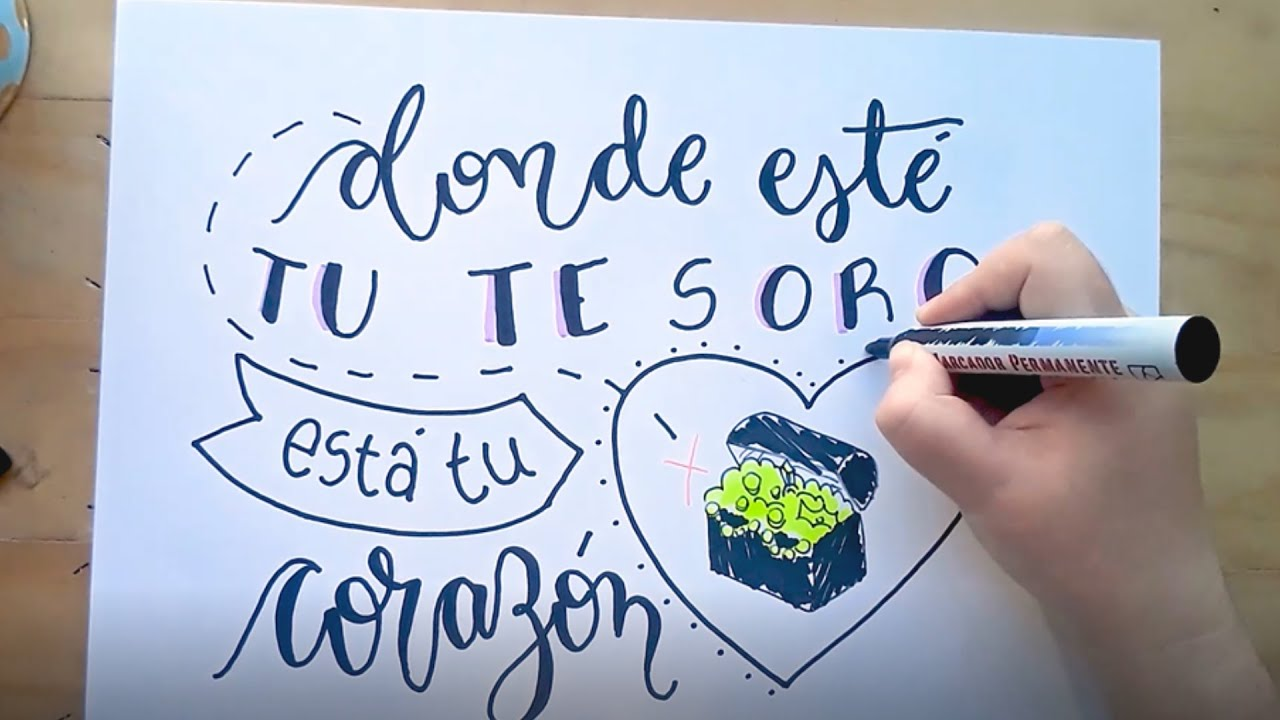 donde esté
TU TESORO
está tu
corazón
MARCADOR PERMANENTE